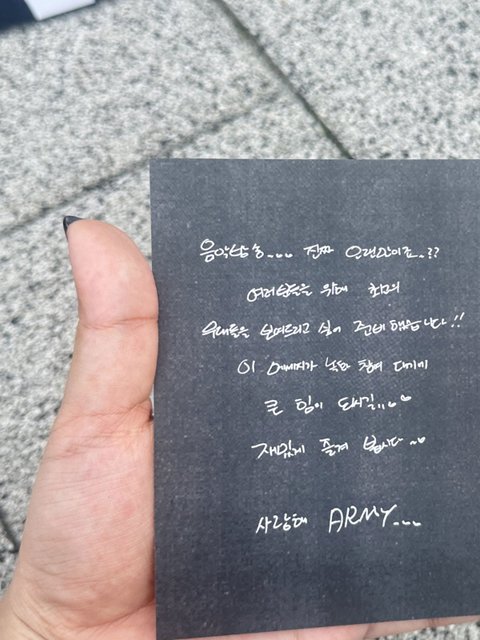 음악방송... 진짜 오랜만이죠..??
여러분들을 위해 최고의
무대들을 보여드리고 싶어 준비 했습니다!!
이 메세지가 녹화 참여 대기에
큰 힘이 되시길..
재밌게 즐겨 봅시다~
사랑해 ARMY...